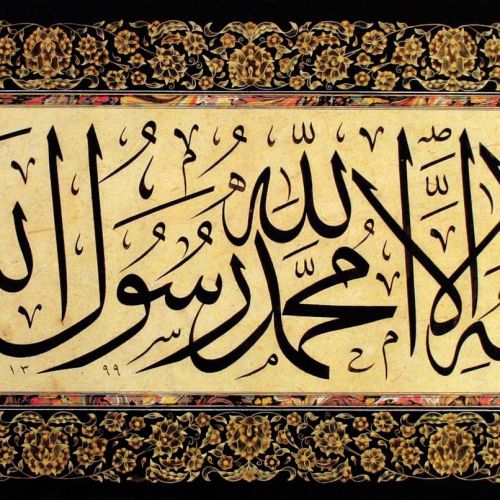 ـه الّا اللّه محمّد رسول الـ
١٣٩٩